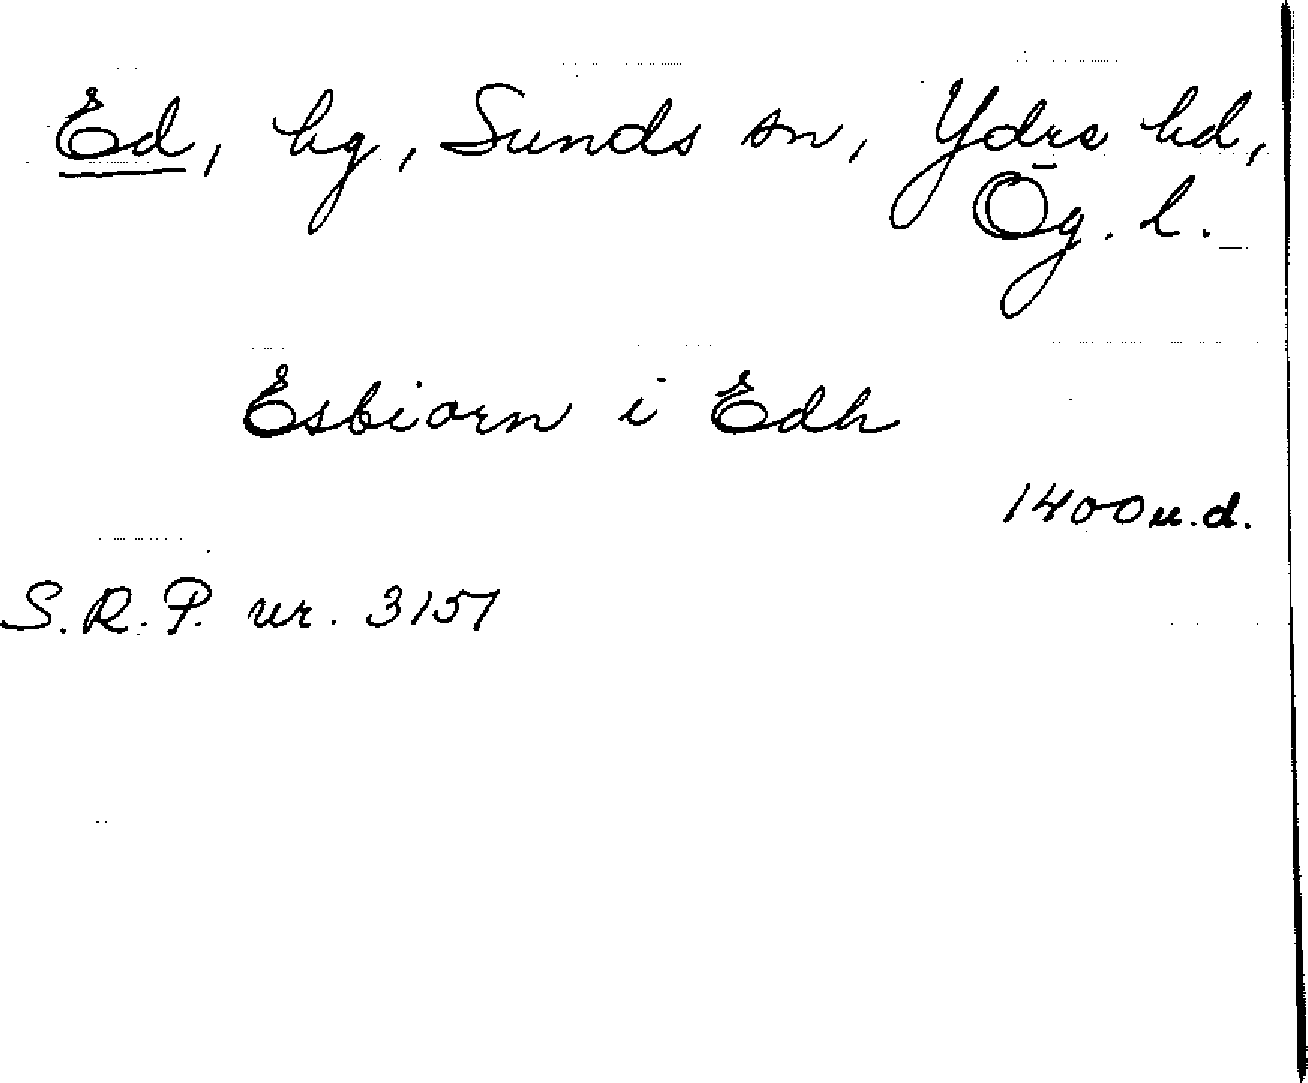 Ed, hg, Sunds sn, Ydre hd,
Ög. l.
Esbiorn i Edh
1400 u.d.
S.R.P. nr. 3157